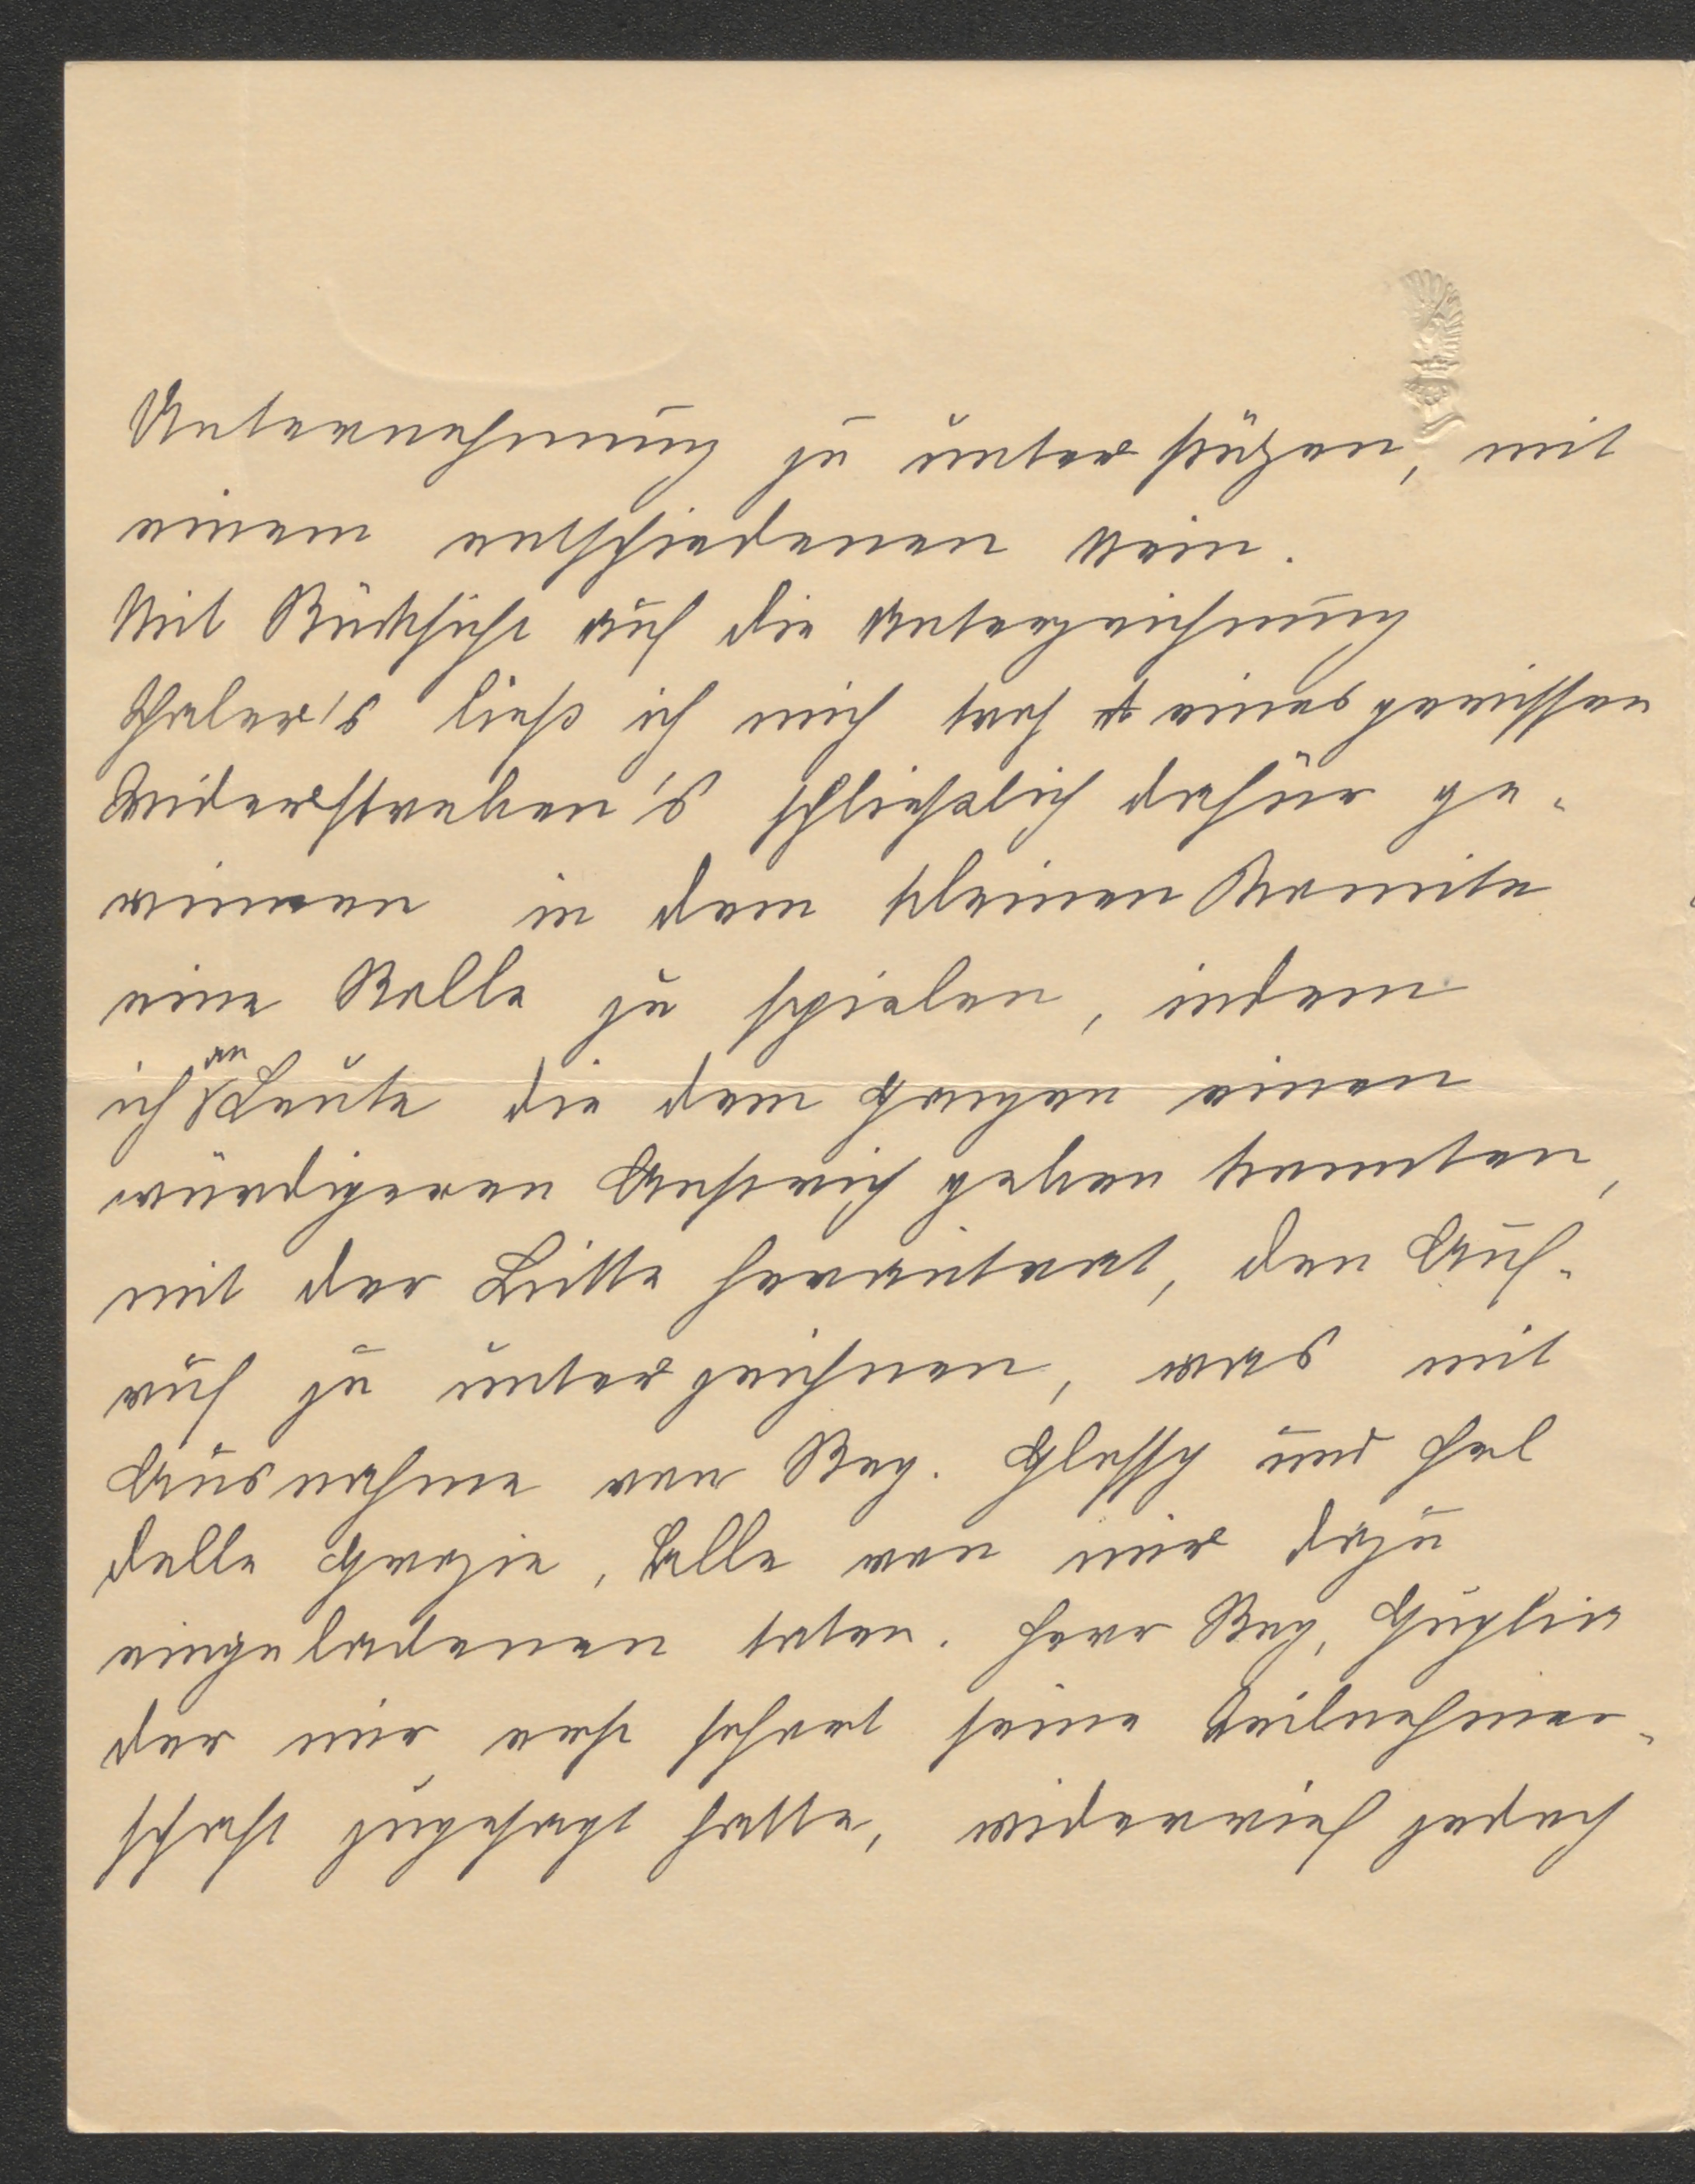 Unternehmung zu unterstüzen, mit
einem entschiedenen Nein.
Mit Rücksicht auf die Unterzeichnung
Thaler's ließ ich mich troz eines gewissen
Widerstreben's schließlich dafür ge-
winnen in dem kleinen Komite
eine Rolle zu spielen, indem
ich an Leute die dem Ganzen einen
würdigeren Anstrich geben konnten,
mit der Bitte herantrat, den Auf-
ruf zu unterzeichnen, was mit
Ausnahme von Reg. Glossy und Frl
delle Grazie, Alle von mir dazu
eingeladenen taten. Herr Reg. Guglia
der mir erst sofort seine Teilnehmer-
schaft zugesagt hatte, widerrief jedoch